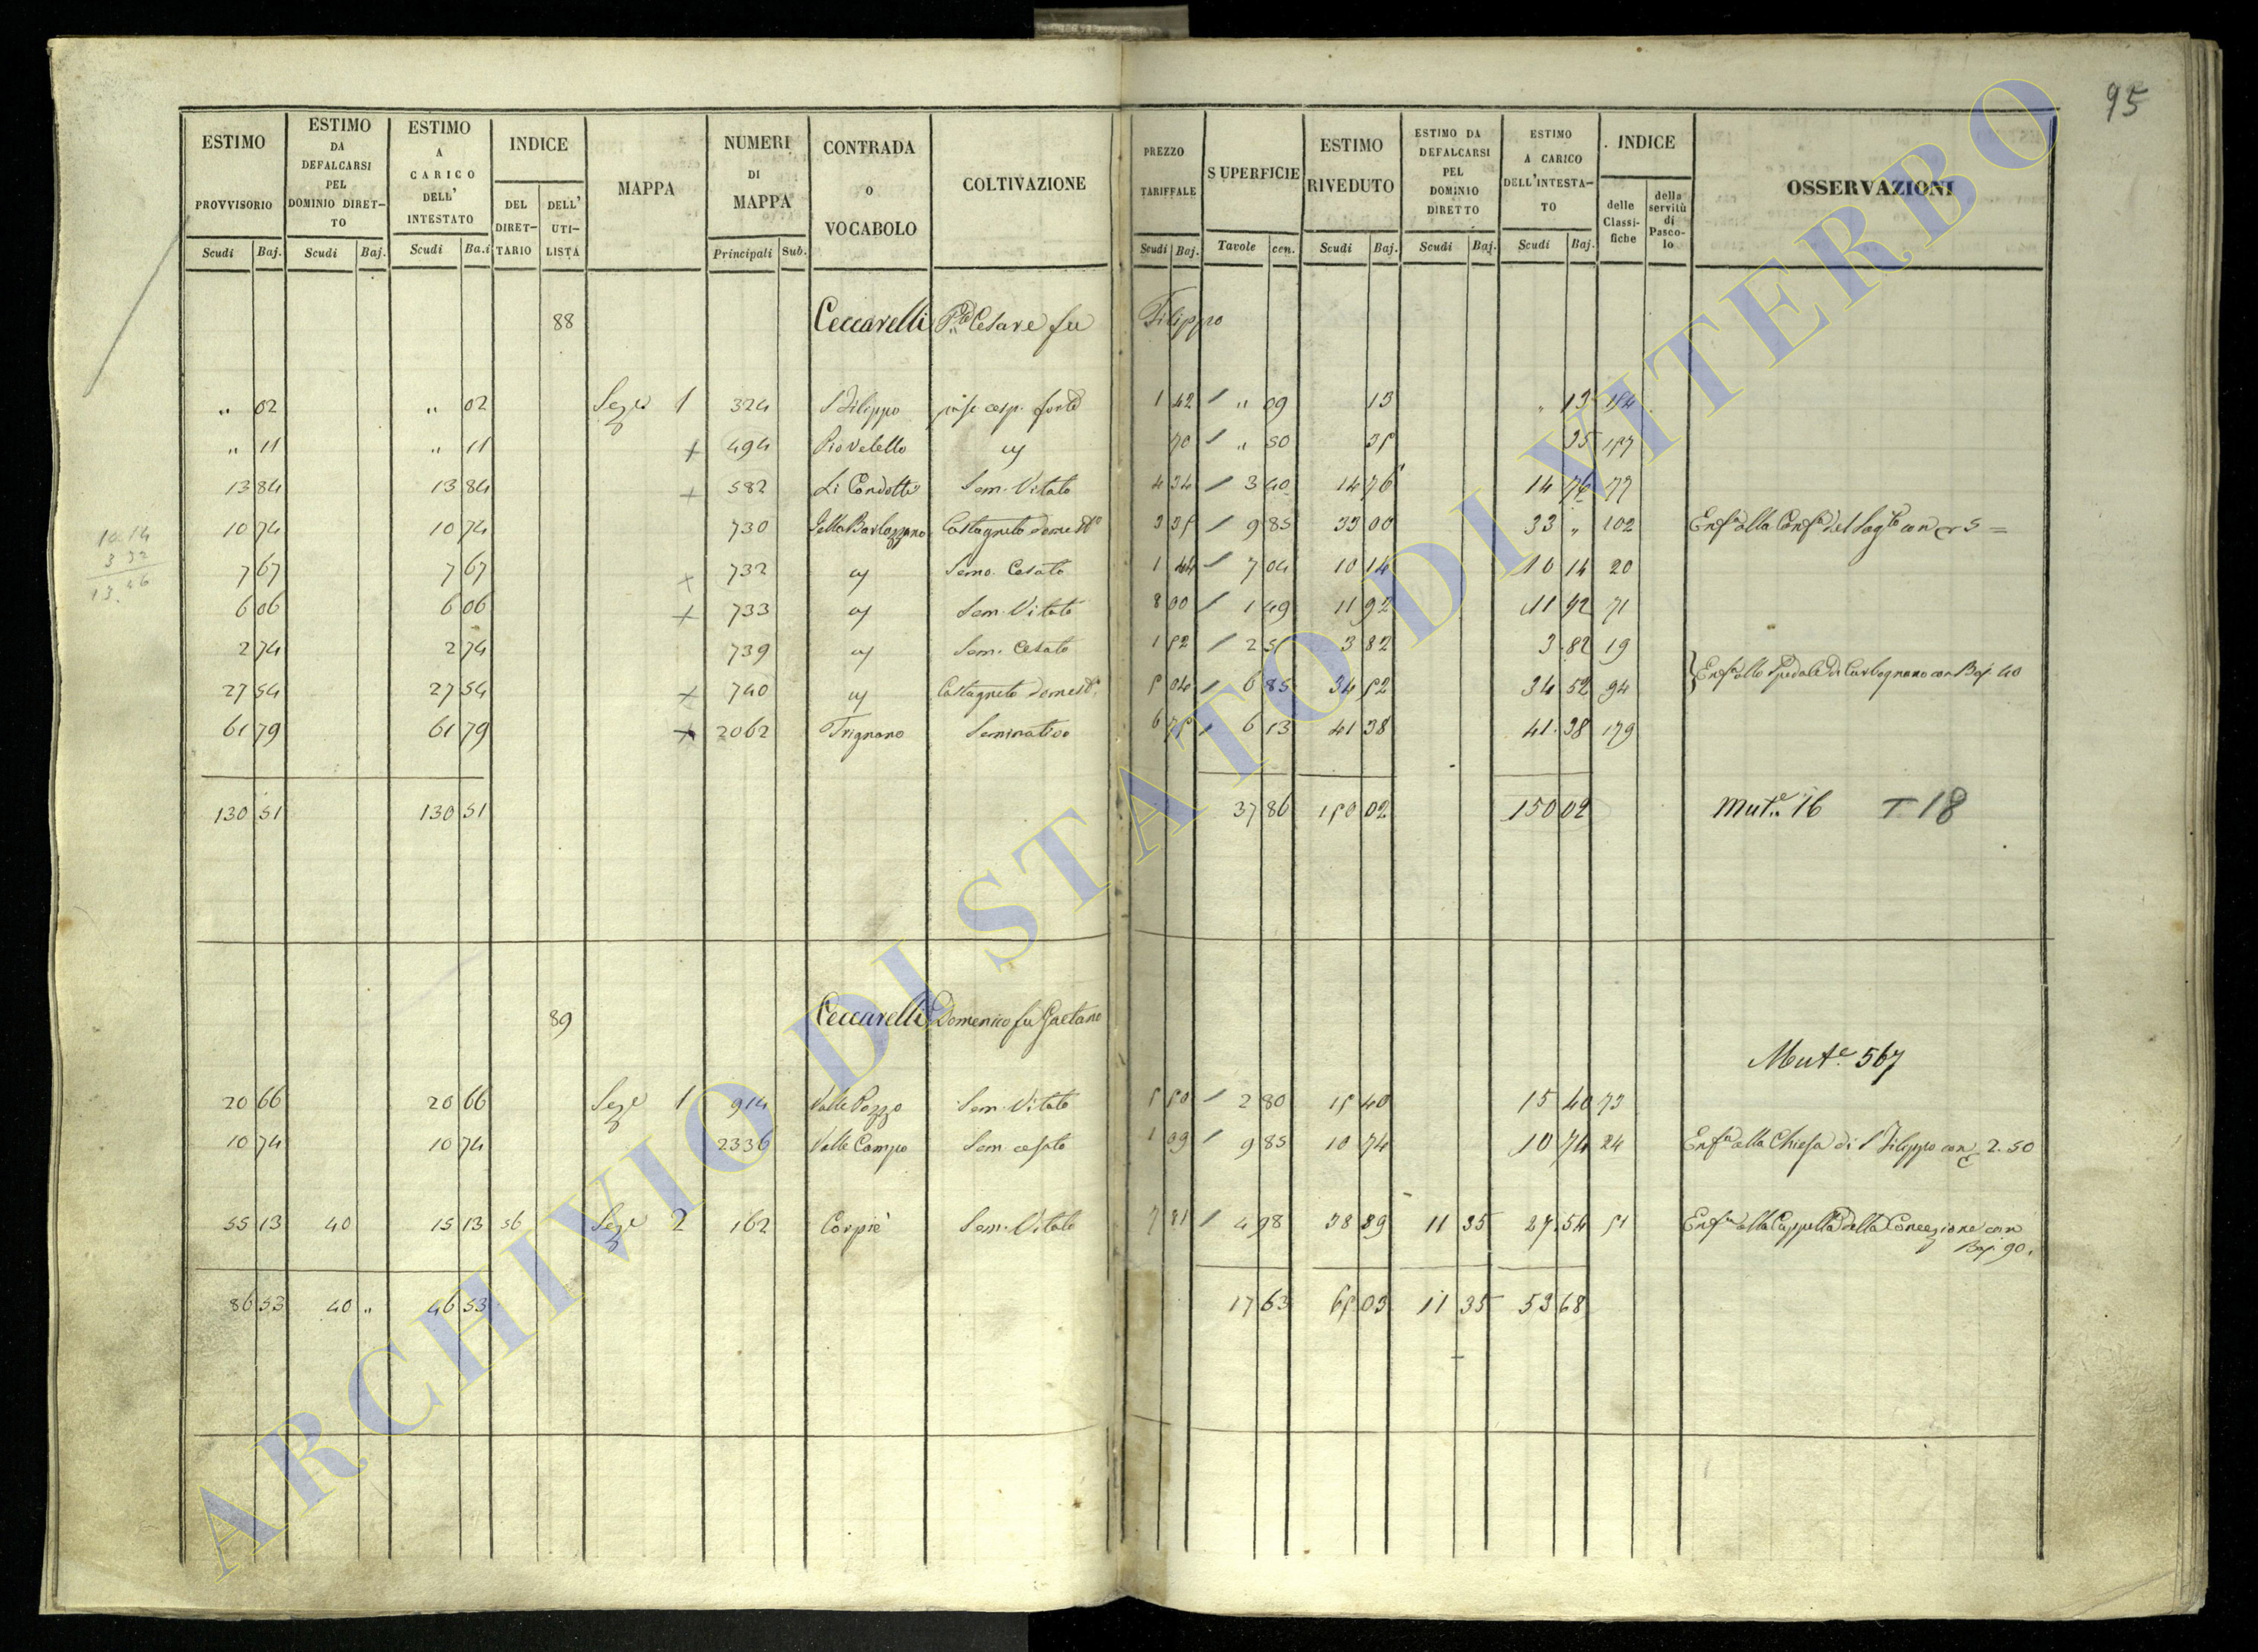 95
ESTIMO PROVVISORIO Scudi Baj.
ESTIMO DA DEFALCARSI PEL DOMINIO DIRET-TO Scudi Baj.
ESTIMO A CARICO DELL' INTESTATO Scudi Ba.i
INDICE DEL DIRET-TARIO DELL' UTI-LISTA
MAPPA
NUMERI DI MAPPA Principali Sub.
CONTRADA O VOCABOLO
COLTIVAZIONE
PREZZO TARIFFALE Scudi Baj.
SUPERFICIE Tavole cen.
ESTIMO RIVEDUTO Scudi Baj.
ESTIMO DA DEFALCARSI PEL DOMINIO DIRETTO Scudi Baj.
ESTIMO A CARICO DELL'INTESTA-TO Scudi Baj.
INDICE delle Classi-fiche della servitù di Pasco-lo
OSSERVAZIONI
88 Ceccarelli Cesare fu Filippo
" 02 " 02 Sez.e 1 324 S Filippo 1 42 " 09 13 " 13 154
" 11 " 11 + 494 Piovelello 70 " 50 35 35 157
13 84 13 84 + 582 Li Condotti Sem. Vitato 4 34 3 40 14 76 14 76 77
10 74 10 74 730 Castagneto domest.o 3 35 9 85 33 00 33 " 102
7 67 7 67 + 732 Semo. Cesato 1 44 7 04 10 14 10 14 20
6 06 6 06 + 733 Sem. Vitato 8 00 1 49 11 92 11 92 71
2 74 2 74 739 Sem. Cesato 1 52 2 51 3 82 3 82 19
27 54 27 54 + 740 Castagneto domest. 5 04 6 85 34 52 34 52 94 Enf.a allo Spedale di Carbognano con Baj. 40
61 79 61 79 + 2062 Trignano Seminativo 6 75 6 13 41 38 41 38 179
130 51 130 51 37 86 150 02 150 02 Mut.e 16 T 18
89 Ceccarelli Domenico fu Gaetano
Mut.e 567
20 66 20 66 Sez.e 1 914 Valle Pozzo Sem. Vitato 5 50 2 80 15 40 15 40 73
10 74 10 74 2336 Valle Campo Sem cesato 1 09 9 85 10 74 10 74 24 Enf.a alla Chiesa di S Filippo con 2.50
55 13 40 15 13 56 Sez.e 2 162 Corpiè Sem. Vitato 7 81 4 98 38 89 11 35 27.54 51 Enf.a alla Cappella della Concezione con
Baj. 90.
86 53 40 " 46 53 17 63 65 03 11 35 53 68
ARCHIVIO DI STATO DI VITERBO